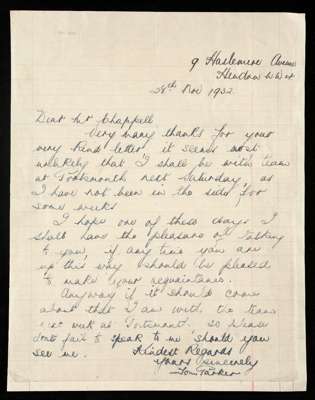 9 Haslemere Avenue
Hendon N.W.4
28th Nov 1932
Dear Mr Chappell
Very many thanks for your
very kind letter it seems most
unlikely that I shall be with team
at next Saturday, as
I have not been in the side for
some weeks
I hope one of these days I
shall have the pleasure of talking
to you, if any time you are
up this way I should be pleased
to make your acquaintance.
Anyway if it should come
about that I am with the team
next week at so please
dont fail to speak to me should you
see me. Kindest Regards
Yours sincerely
Tom Parker